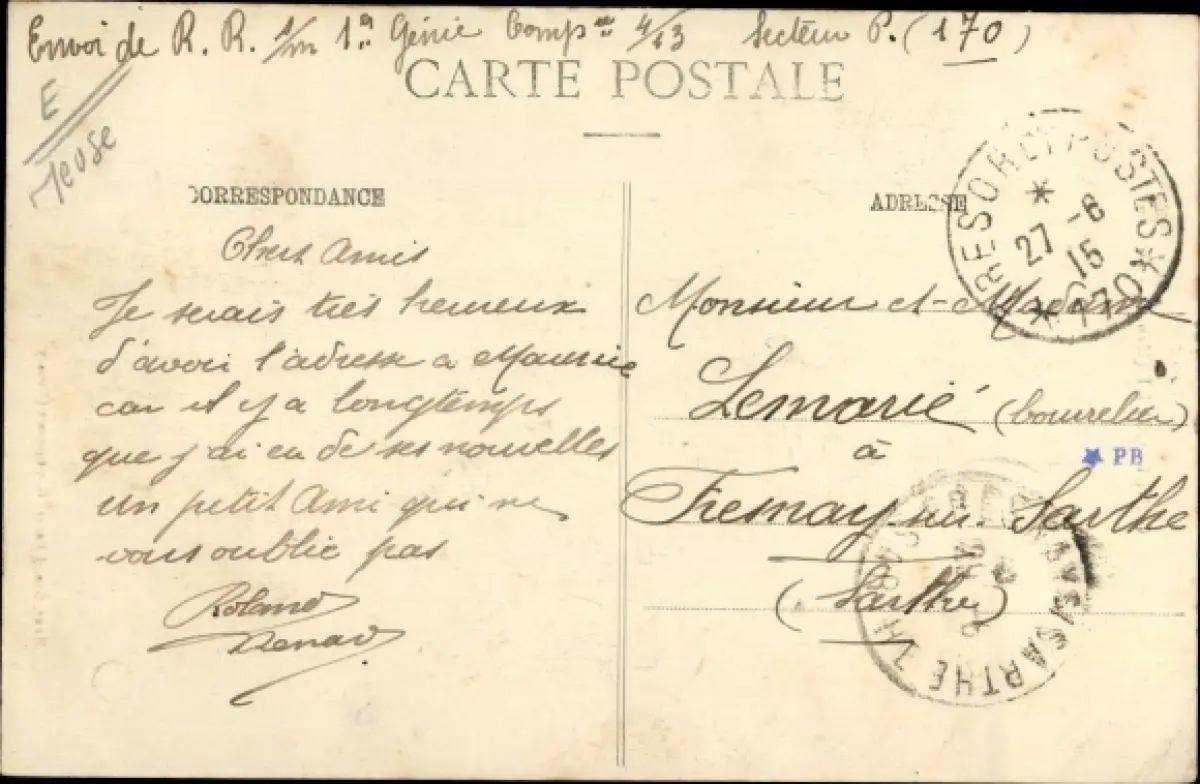 Envoi de R. R. s/m 1er Génie Compie 4/13 Secteur P. (170)
CARTE POSTALE
E
Meuse
CORRESPONDANCE
ADRESSE
TRESOR ET POSTES * 170 *
* 27 -8 15
Chers Amis
Je serais très heureux
d'avoir l'adresse a Maurice
car il y a longtemps
que j'ai eu de ses nouvelles
Un petit Ami qui ne
vous oublie pas
Roland
Renard
Monsieur et Madame
Lemarié (bourrelier)
à
PB
Fresnay-sur-Sarthe
(Sarthe)
SARTHE